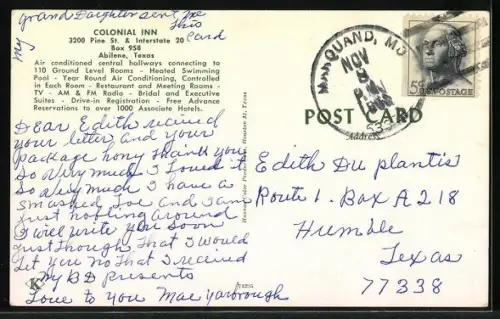 my grand Daighter sent me
this
card
COLONIAL INN
3200 Pine St. & Interstate 20
Box 958
Abilene, Texas
Air conditioned central hallways connecting to
110 Ground Level Rooms - Heated Swimming
Pool - Year Round Air Conditioning, Controlled
in Each Room - Restaurant and Meeting Rooms -
TV - AM & FM Radio - Bridal and Executive
Suites - Drive-in Registration - Free Advance
Reservations to over 1000 Associate Hotels.
Dear Edith recived
your letter and your
package hony Thank you
So Very much I loved it
So Very much I have a
smashed Toe and I am
just hobling around
I will write you soon
just Though That I would
let you no That I recived
my BD presents
Love to you Mae Yarborough
MARQUAND, MO
NOV
5¢ U.S. POSTAGE
POST CARD
Address
Edith Du plantis
Route 1. Box A 218
Humble
Texas
77338
K